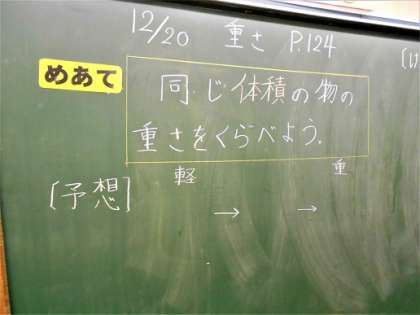 12/20 重さ P.124
めあて
同じ体積の物の
重さをくらべよう.
軽 重
[予想] → →